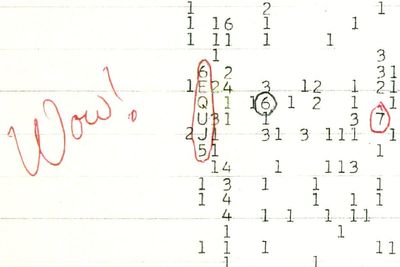 1 2 1
1 16 1 1
1 11 1 1
1 3
6 2 31
1 E24 3 12 1 21
Wow! Q 1 16 1 2 1 1
U31 1 3 7
2 J1 31 3 111 1
5 1
14 1 113
1 3 1 1 1
1 4 1 1 1
4 1 1 1 11
1 1
1 1 1 1 11
1 1